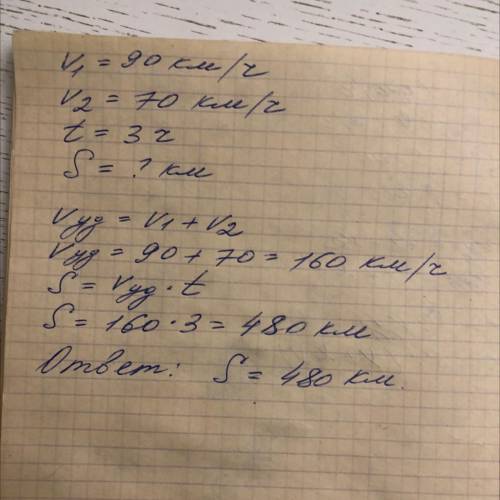 V₁ = 90 км/ч
V₂ = 70 км/ч
t = 3 ч
S = ? км
Vуд = V₁ + V₂
Vуд = 90 + 70 = 160 км/ч
S = Vуд · t
S = 160 · 3 = 480 км
Ответ: S = 480 км.